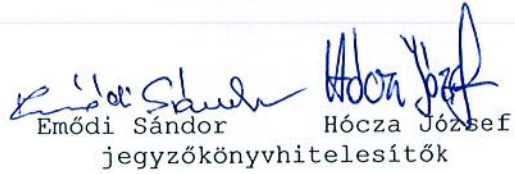 Emődi Sándor Hócza József
Emődi Sándor Hócza József
jegyzőkönyvhitelesítők